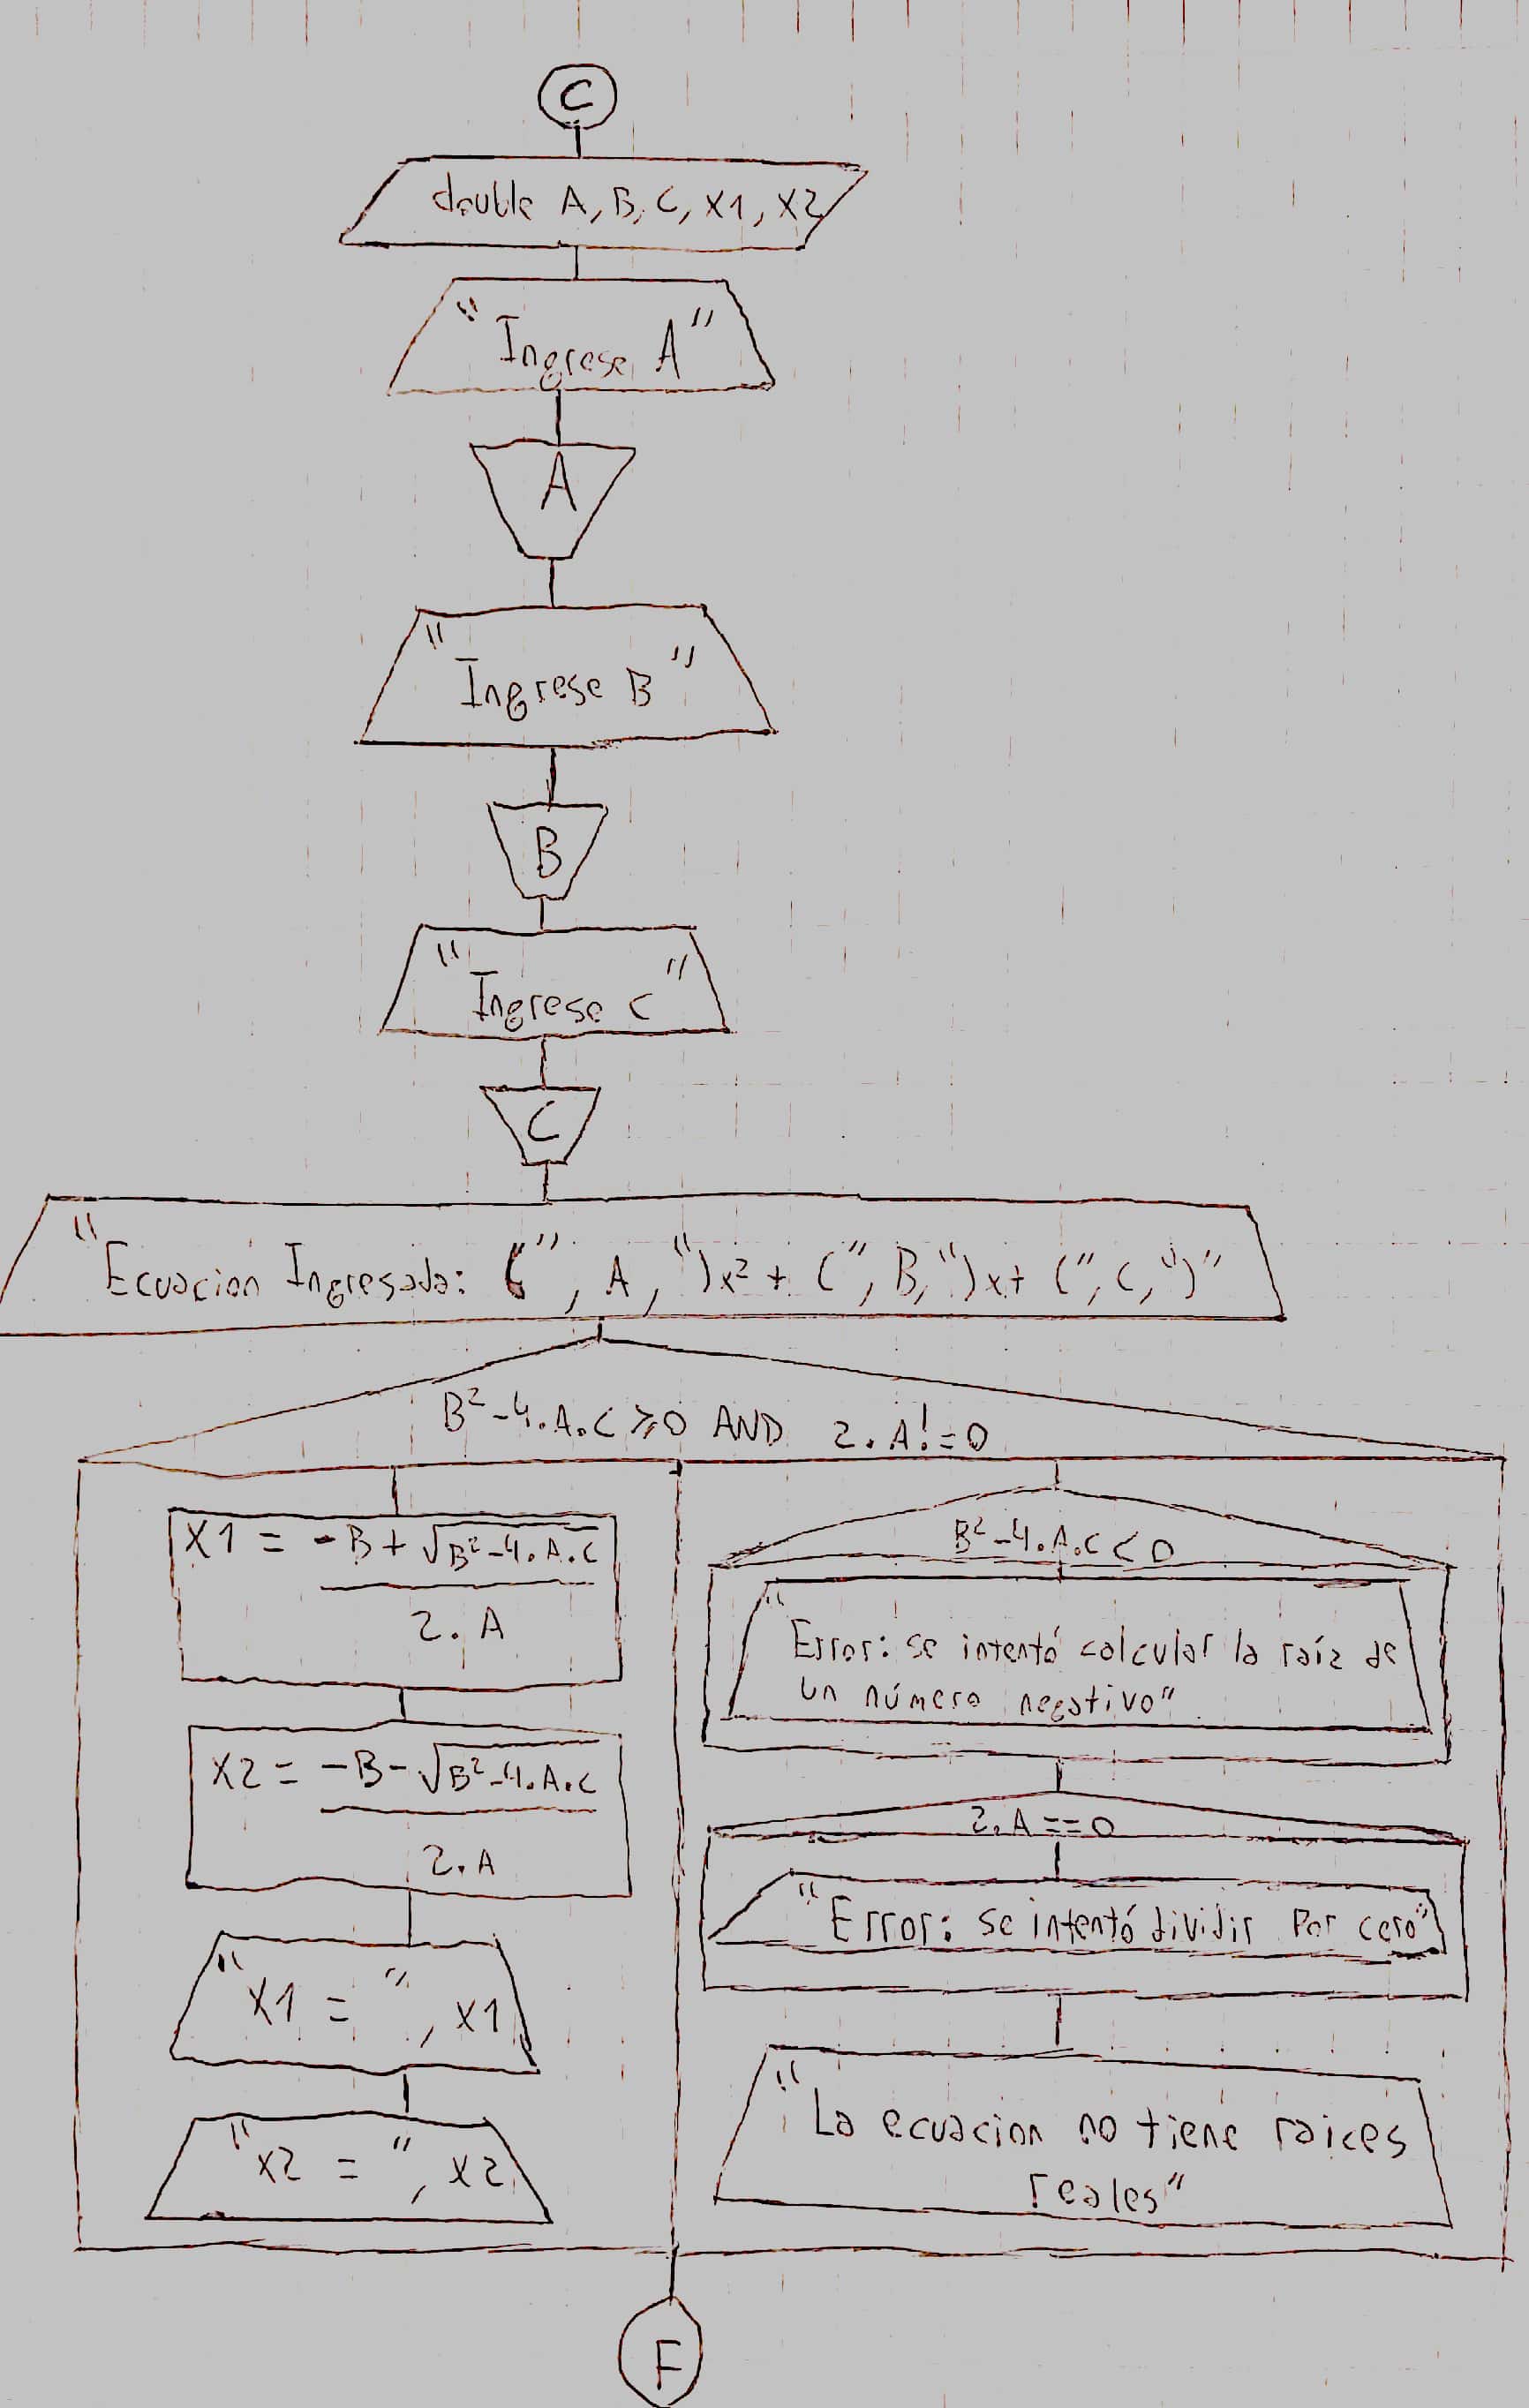 C
double A, B, C, X1, X2
"Ingrese A"
A
"Ingrese B"
B
"Ingrese C"
C
"Ecuacion Ingresada: (", A, ")x² + (", B, ")x+ (", C, ")"
B²-4.A.C ≥ 0 AND 2.A!=0
X1 = -B+√B²-4.A.C
2.A
X2 = -B-√B²-4.A.C
2.A
"X1 = ", X1
"X2 = ", X2
B²-4.A.C < 0
"Error: se intentó calcular la raíz de
un número negativo"
2.A==0
"Error: se intentó dividir por cero"
"La ecuacion no tiene raices
reales"
F